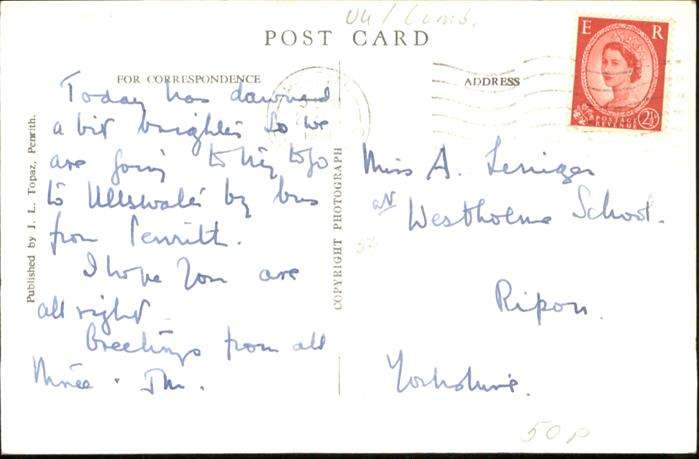 POST CARD
FOR CORRESPONDENCE
Today has dawned
a bit brighter so we
are going to try to go
to Ullswater by bus
from Penrith.
I hope you are
all right.
Greetings from all
three.
Published by J. L. Topaz, Penrith.
COPYRIGHT PHOTOGRAPH
ADDRESS
E R
POSTAGE
REVENUE
2½
Miss A.
at Westholme School.
Ripon.
Yorkshire.
50p